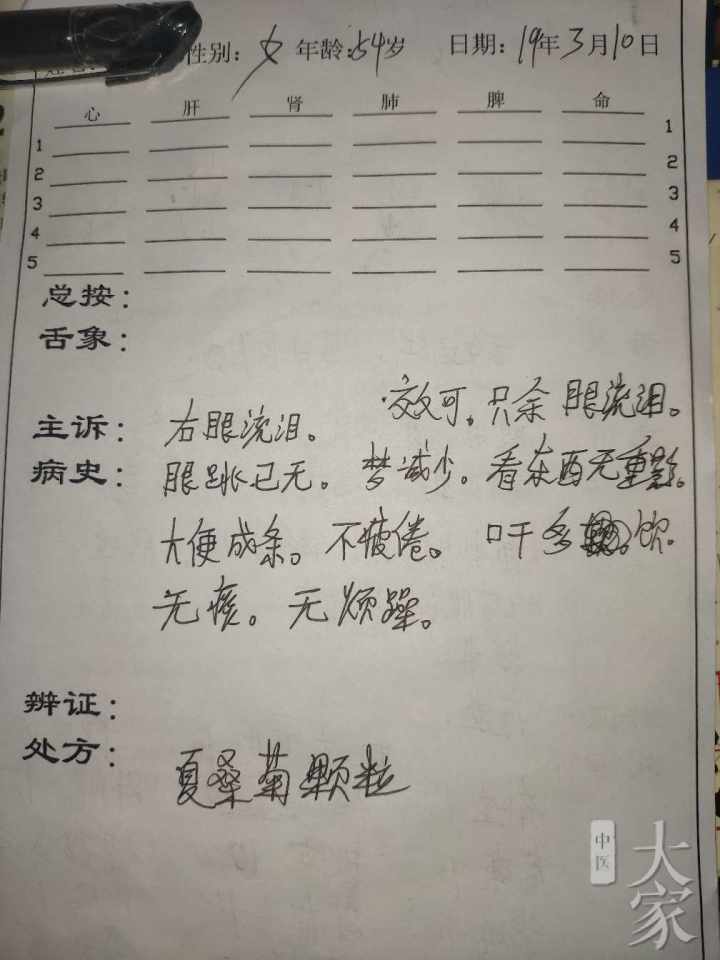 性别：女 年龄：54岁 日期：19年3月10日
心 肝 肾 肺 脾 命
1 1
2 2
3 3
4 4
5 5
总按：
舌象：
效可。只余眼流泪。
主诉： 右眼流泪。
病史： 眼跳已无。梦减少。看东西无重影。
大便成条。不疲倦。口干多饮。
无痰。无烦躁。
辨证：
处方：
夏桑菊颗粒
中医
大家